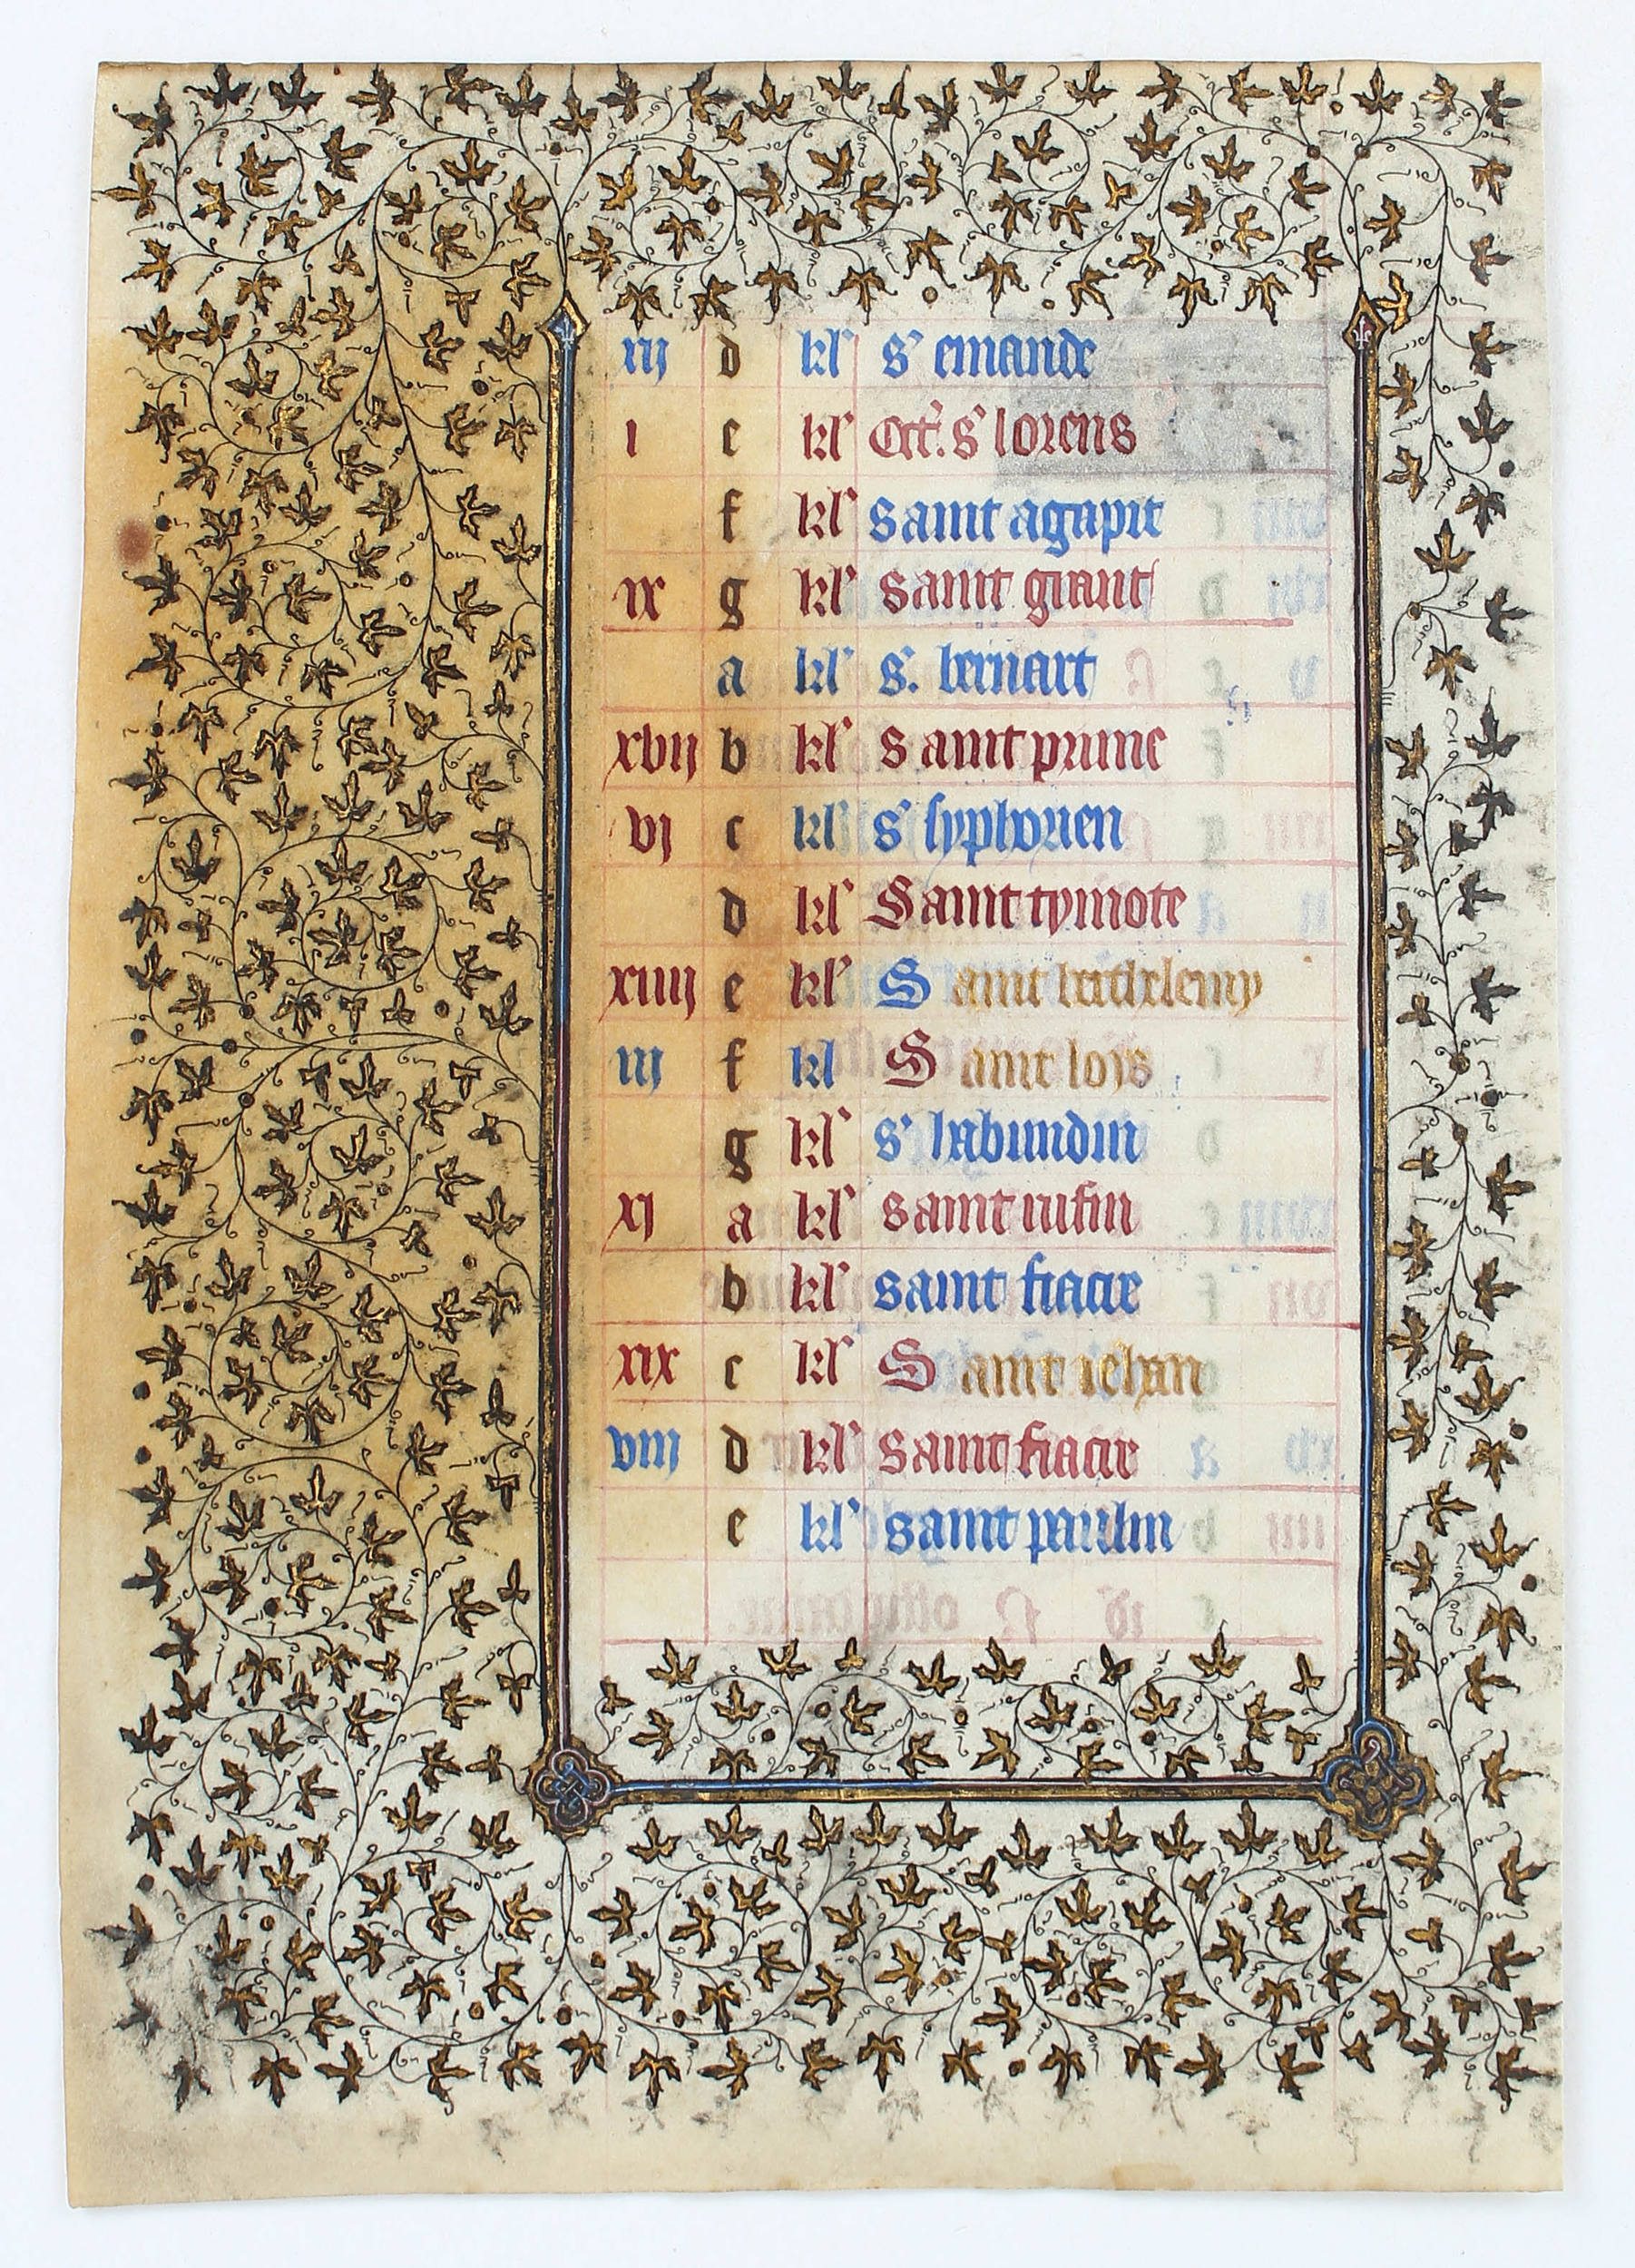 iij d kl' s' emande
i e kl' Oct'. s' lorens
f kl' saint agapit
ix g kl' saint giant
a kl' s. bernart
xvij b kl' saint prime
vj c kl' s' syphorien
d kl' Saint tymote
xiiij e kl' Saint berthelemy
iij f kl Saint loys
g kl' s' habundin
xj a kl' saint rufin
b kl' saint fiacre
xix c kl' Saint iehan
viij d kl' saint fiacre
e kl' saint paulin